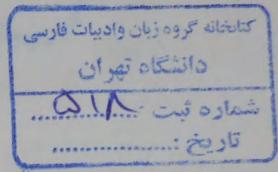 کتابخانه گروه زبان وادبیات فارسی
دانشگاه تهران
شماره ثبت ۵۱۸
تاریخ :